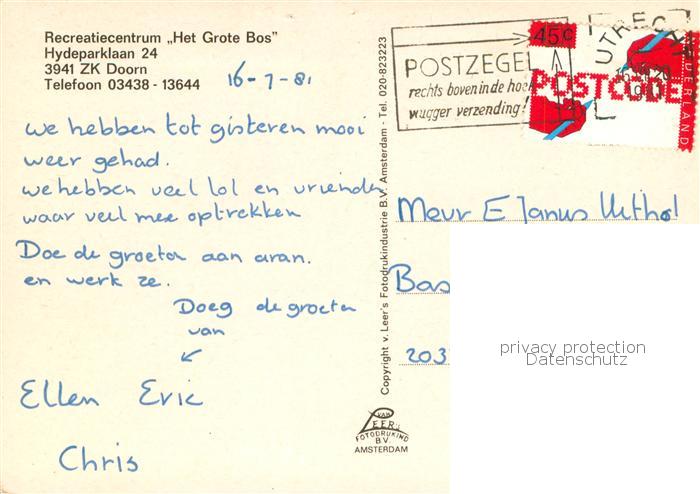 Recreatiecentrum „Het Grote Bos"
Hydeparklaan 24
3941 ZK Doorn
Telefoon 03438 - 13644
16-7-81
we hebben tot gisteren mooi
weer gehad.
we hebben veel lol en vrienden
waar veel mee optrekken
Doe de groeten aan aran.
en werk ze.
Doeg de groeten
van
Ellen Eric
Chris
Copyright v. Leer's Fotodrukindustrie B.V. Amsterdam - Tel. 020-823223
VAN
LEER'S
FOTODRUKIND
B.V.
AMSTERDAM
POSTZEGEL
rechts boven in de hoek
vlugger verzending!
UTRECHT
45c
POSTCODE
NEDERLAND
Mevr E Janus Uithol
Bas
203
privacy protection
Datenschutz